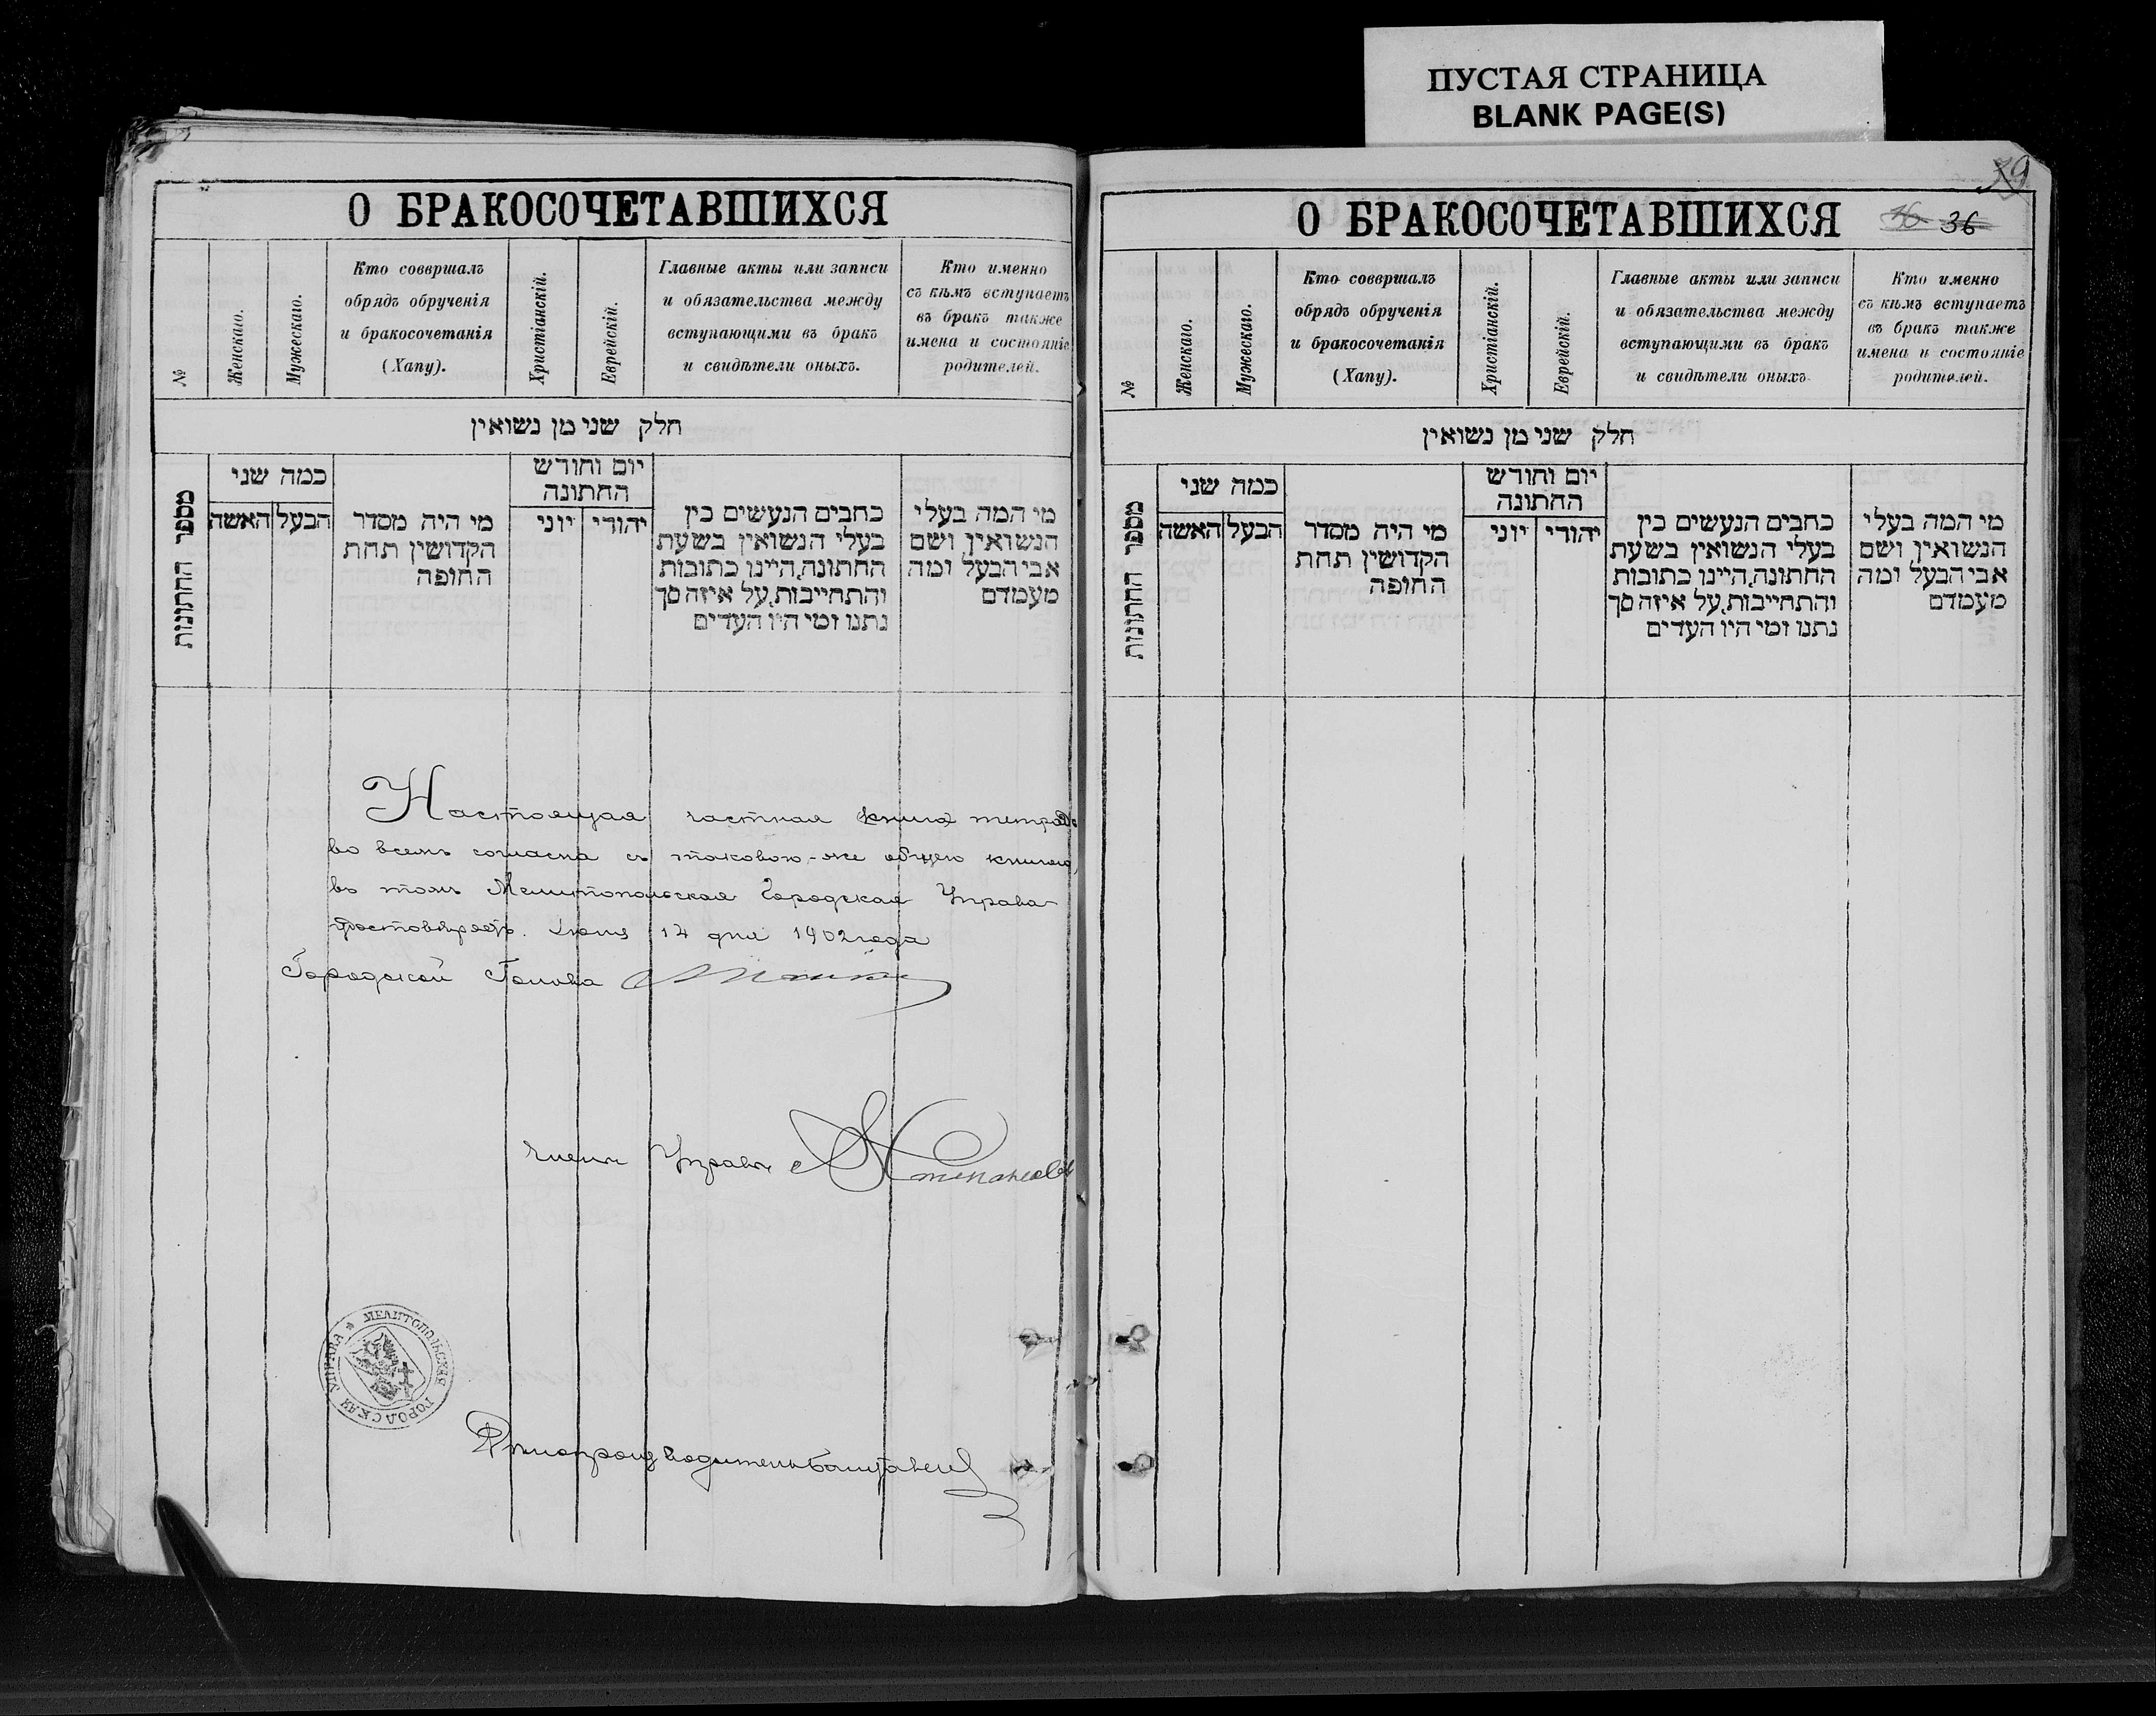 ПУСТАЯ СТРАНИЦА
BLANK PAGE(S)
О БРАКОСОЧЕТАВШИХСЯ
№
Женскаго.
Мужескаго.
Кто соввршалъ
обрядъ обрученія
и бракосочетанія
(Хапу).
Христіанскій.
Еврейскій.
Главные акты или записи
и обязательства между
вступающими въ бракъ
и свидѣтели оныхъ.
Кто именно
съ кѣмъ вступаетъ
въ бракъ также
имена и состояніе
родителей.
חלק שני מן נשואין
מספר החתונות
כמה שני
האשה
הבעל
מי היה מסדר
הקדושין תחת
החופה
יום וחודש
החתונה
יוני
יהודי
כתבים הנעשים בין
בעלי הנשואין בשעת
החתונה,היינו כתובות
והתחייבות,על איזה סך
נתנו ומי היו העדים
מי המה בעלי
הנשואין ושם
אבי הבעל ומה
מעמדם
Настоящая частная книга тетрадь
во всемъ согласна съ таковою-же общею книгою,
въ томъ Мелитопольская Городская Управа
удостовѣряетъ. 14 дня 1902 года
Городской Голова
Членъ Управы
МЕЛИТОПОЛЬСКАЯ ГОРОДСКАЯ УПРАВА
Дѣлопроизводитель
39
О БРАКОСОЧЕТАВШИХСЯ
36 36
№
Женскаго.
Мужескаго.
Кто соввршалъ
обрядъ обрученія
и бракосочетанія
(Хапу).
Христіанскій.
Еврейскій.
Главные акты или записи
и обязательства между
вступающими въ бракъ
и свидѣтели оныхъ
Кто именно
съ кѣмъ вступаетъ
въ бракъ также
имена и состояніе
родителей.
חלק שני מן נשואין
מספר החתונות
כמה שני
האשה
הבעל
מי היה מסדר
הקדושין תחת
החופה
יום וחודש
החתונה
יוני
יהודי
כתבים הנעשים בין
בעלי הנשואין בשעת
החתונה,היינו כתובות
והתחייבות,על איזה סך
נתנו ומי היו העדים
מי המה בעלי
הנשואין ושם
אבי הבעל ומה
מעמדם